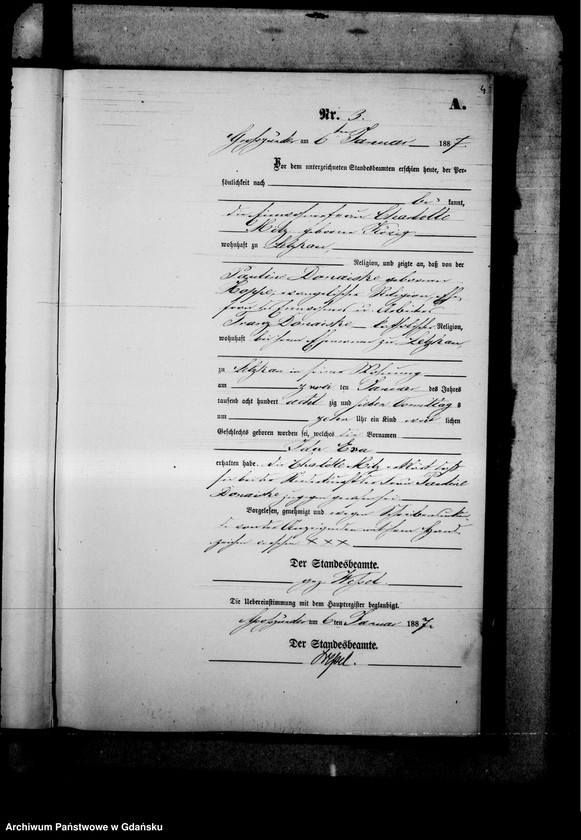 4
A.
Nr. 3.
Großzünder am 6ten Januar 1887.
Vor dem unterzeichneten Standesbeamten erschien heute, der Per-
sönlichkeit nach
be kannt,
die Einwohnerfrau Charlotte
Mitz geborene König
wohnhaft zu Letzkau,
Religion, und zeigte an, daß von der
Pauline Donaiske geborenen
Hoppe, evangelischer Religion, Ehe-
frau des Einwohners u. Arbeiter
Franz Donaiske katholischer Religion,
wohnhaft bei ihrem Ehemanne zu Letzkau
zu Letzkau in seiner Wohnung
am zwei ten Januar des Jahres
tausend acht hundert acht zig und sieben Vormittag s
um zehn Uhr ein Kind weib lichen
Geschlechts geboren worden sei, welches die Vornamen
Ida Eva
erhalten habe. Die Charlotte Mitz daß
sie bei der Niederkunft der Pauline
Donaiske zugegen gewesen sei.
Vorgelesen, genehmigt und wegen Schreibensunkun-
de von der Anzeigenden mit ihrem Hand-
zeichen versehen XXX
Der Standesbeamte.
gez. Wessel
Die Uebereinstimmung mit dem Hauptregister beglaubigt.
Großzünder am 6ten Januar 1887.
Der Standesbeamte.
Wessel.
Archiwum Państwowe w Gdańsku